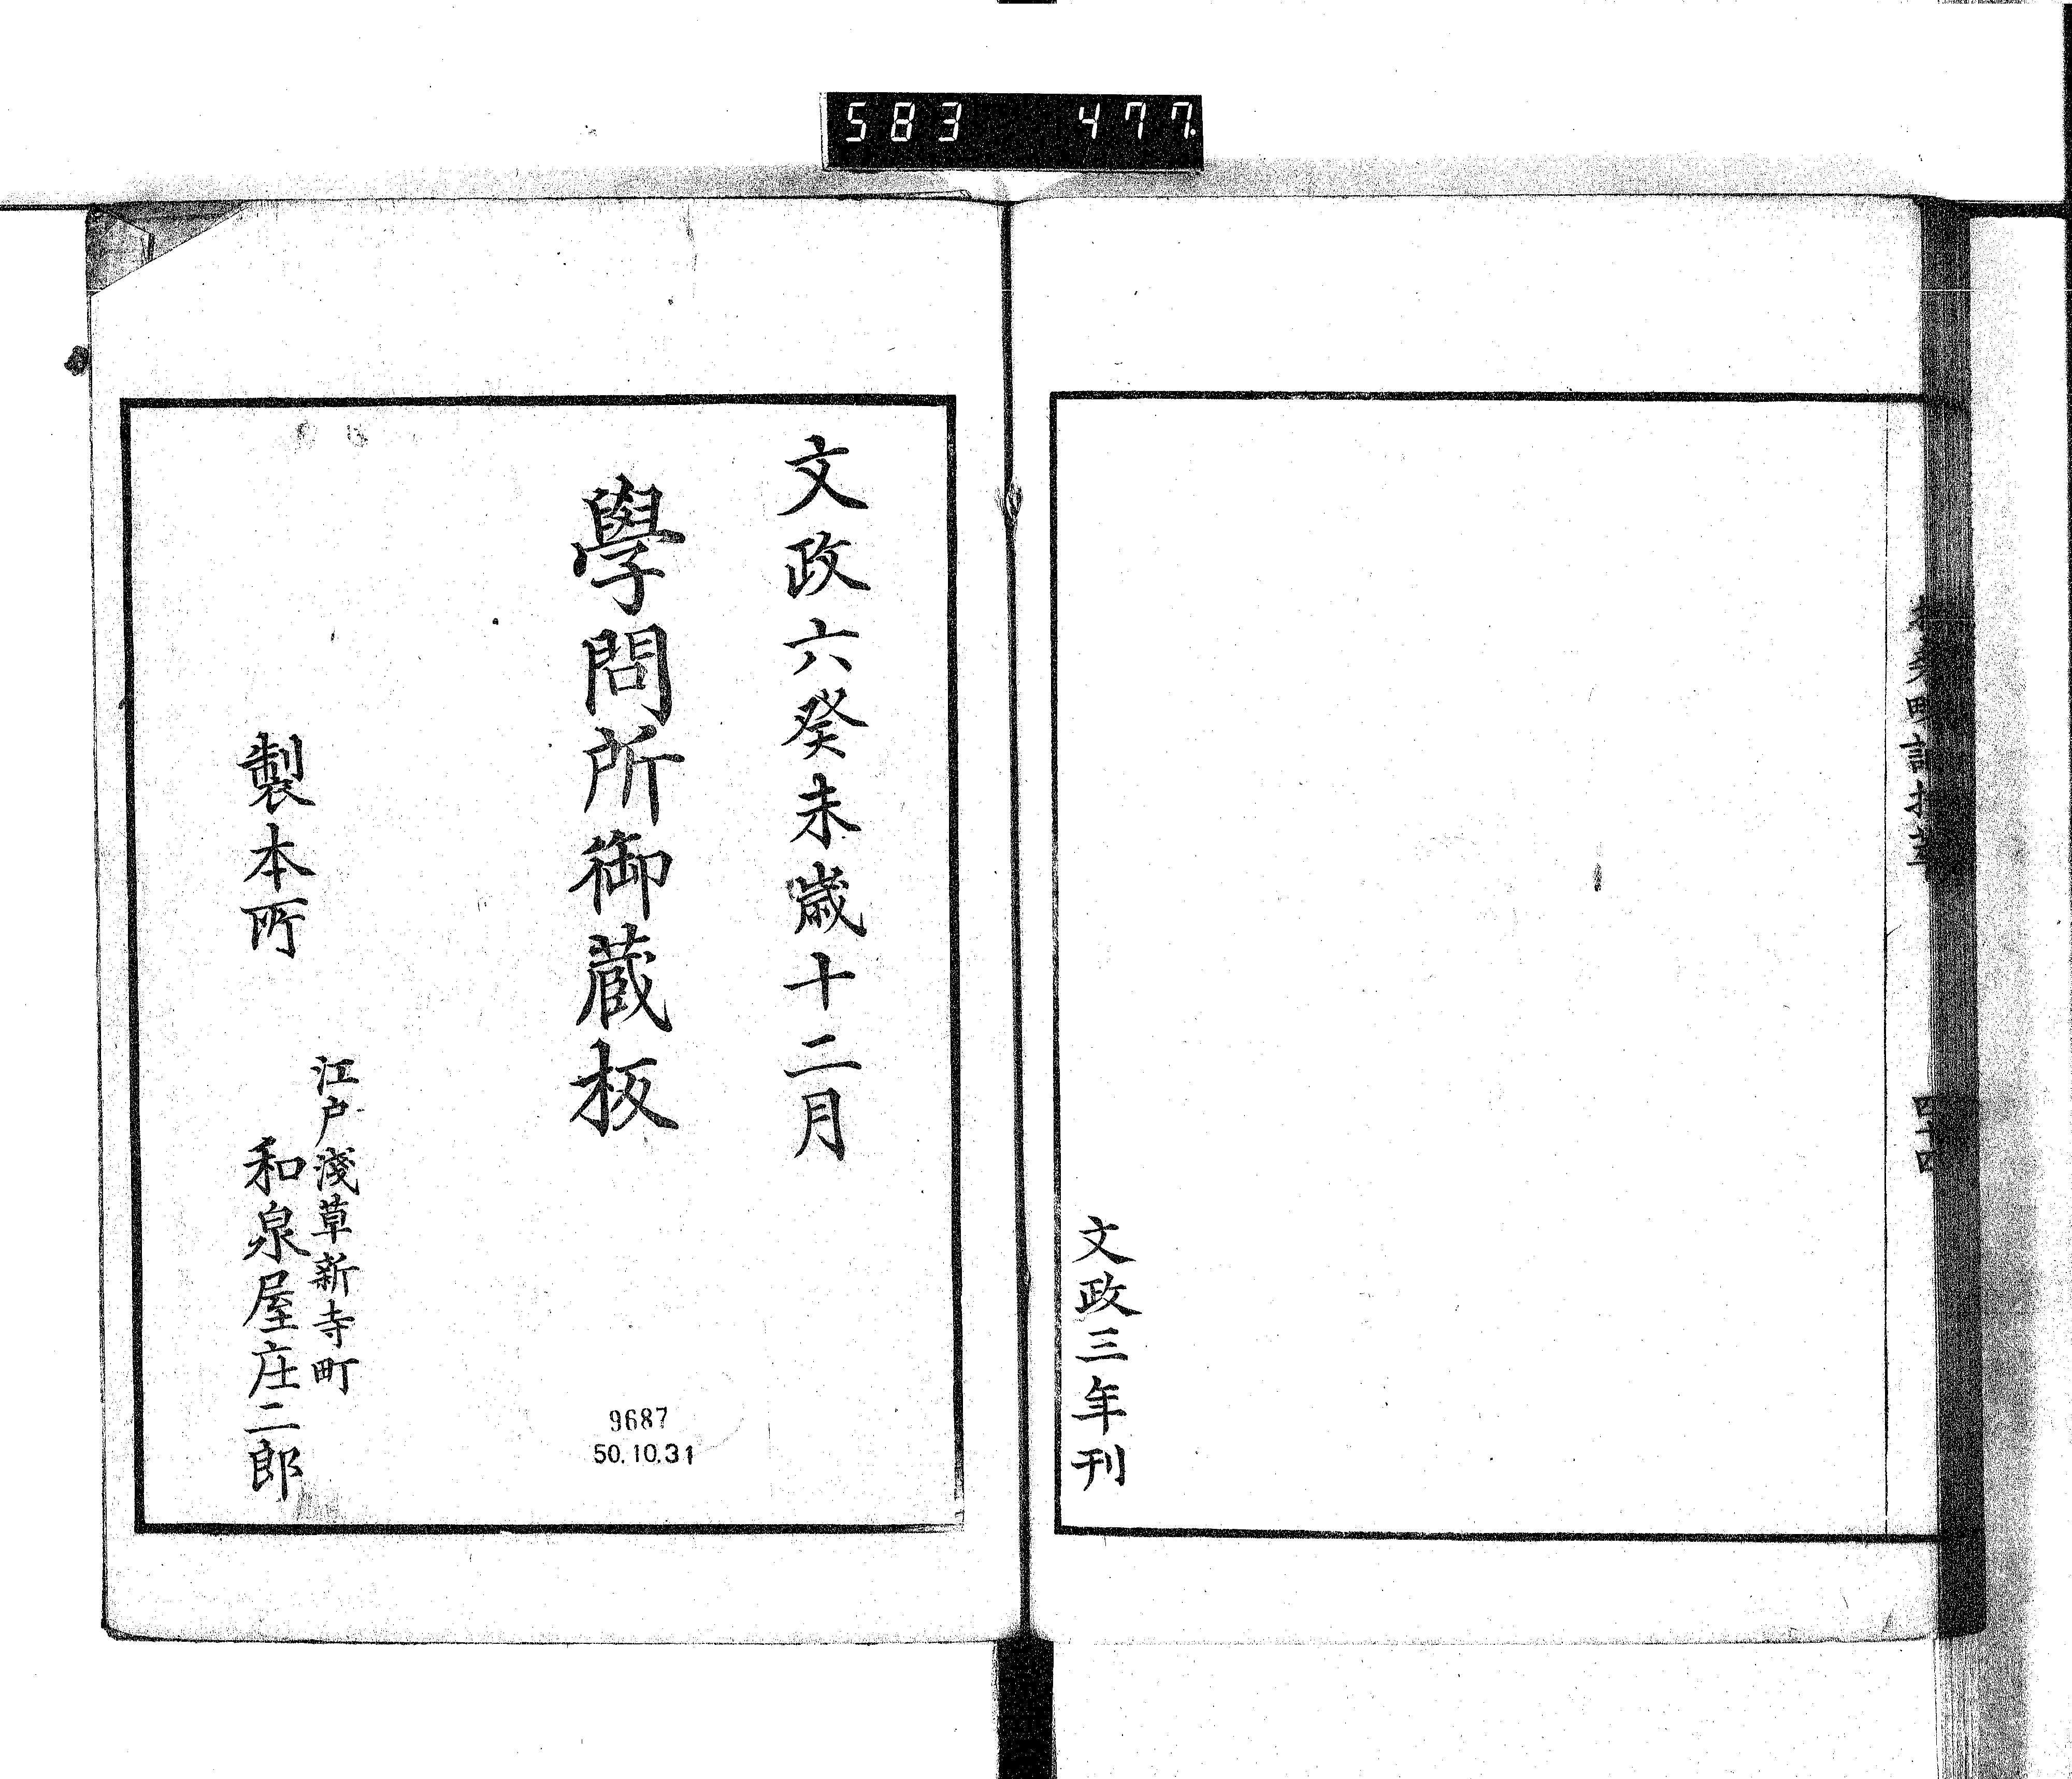 583 477.
文政三年刊
文政六癸未歳十二月
學問所御蔵板
江戸淺草新寺町
製本所 和泉屋庄二郎
9687
50.10.31